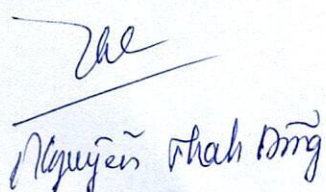 Nguyễn Thanh Dũng